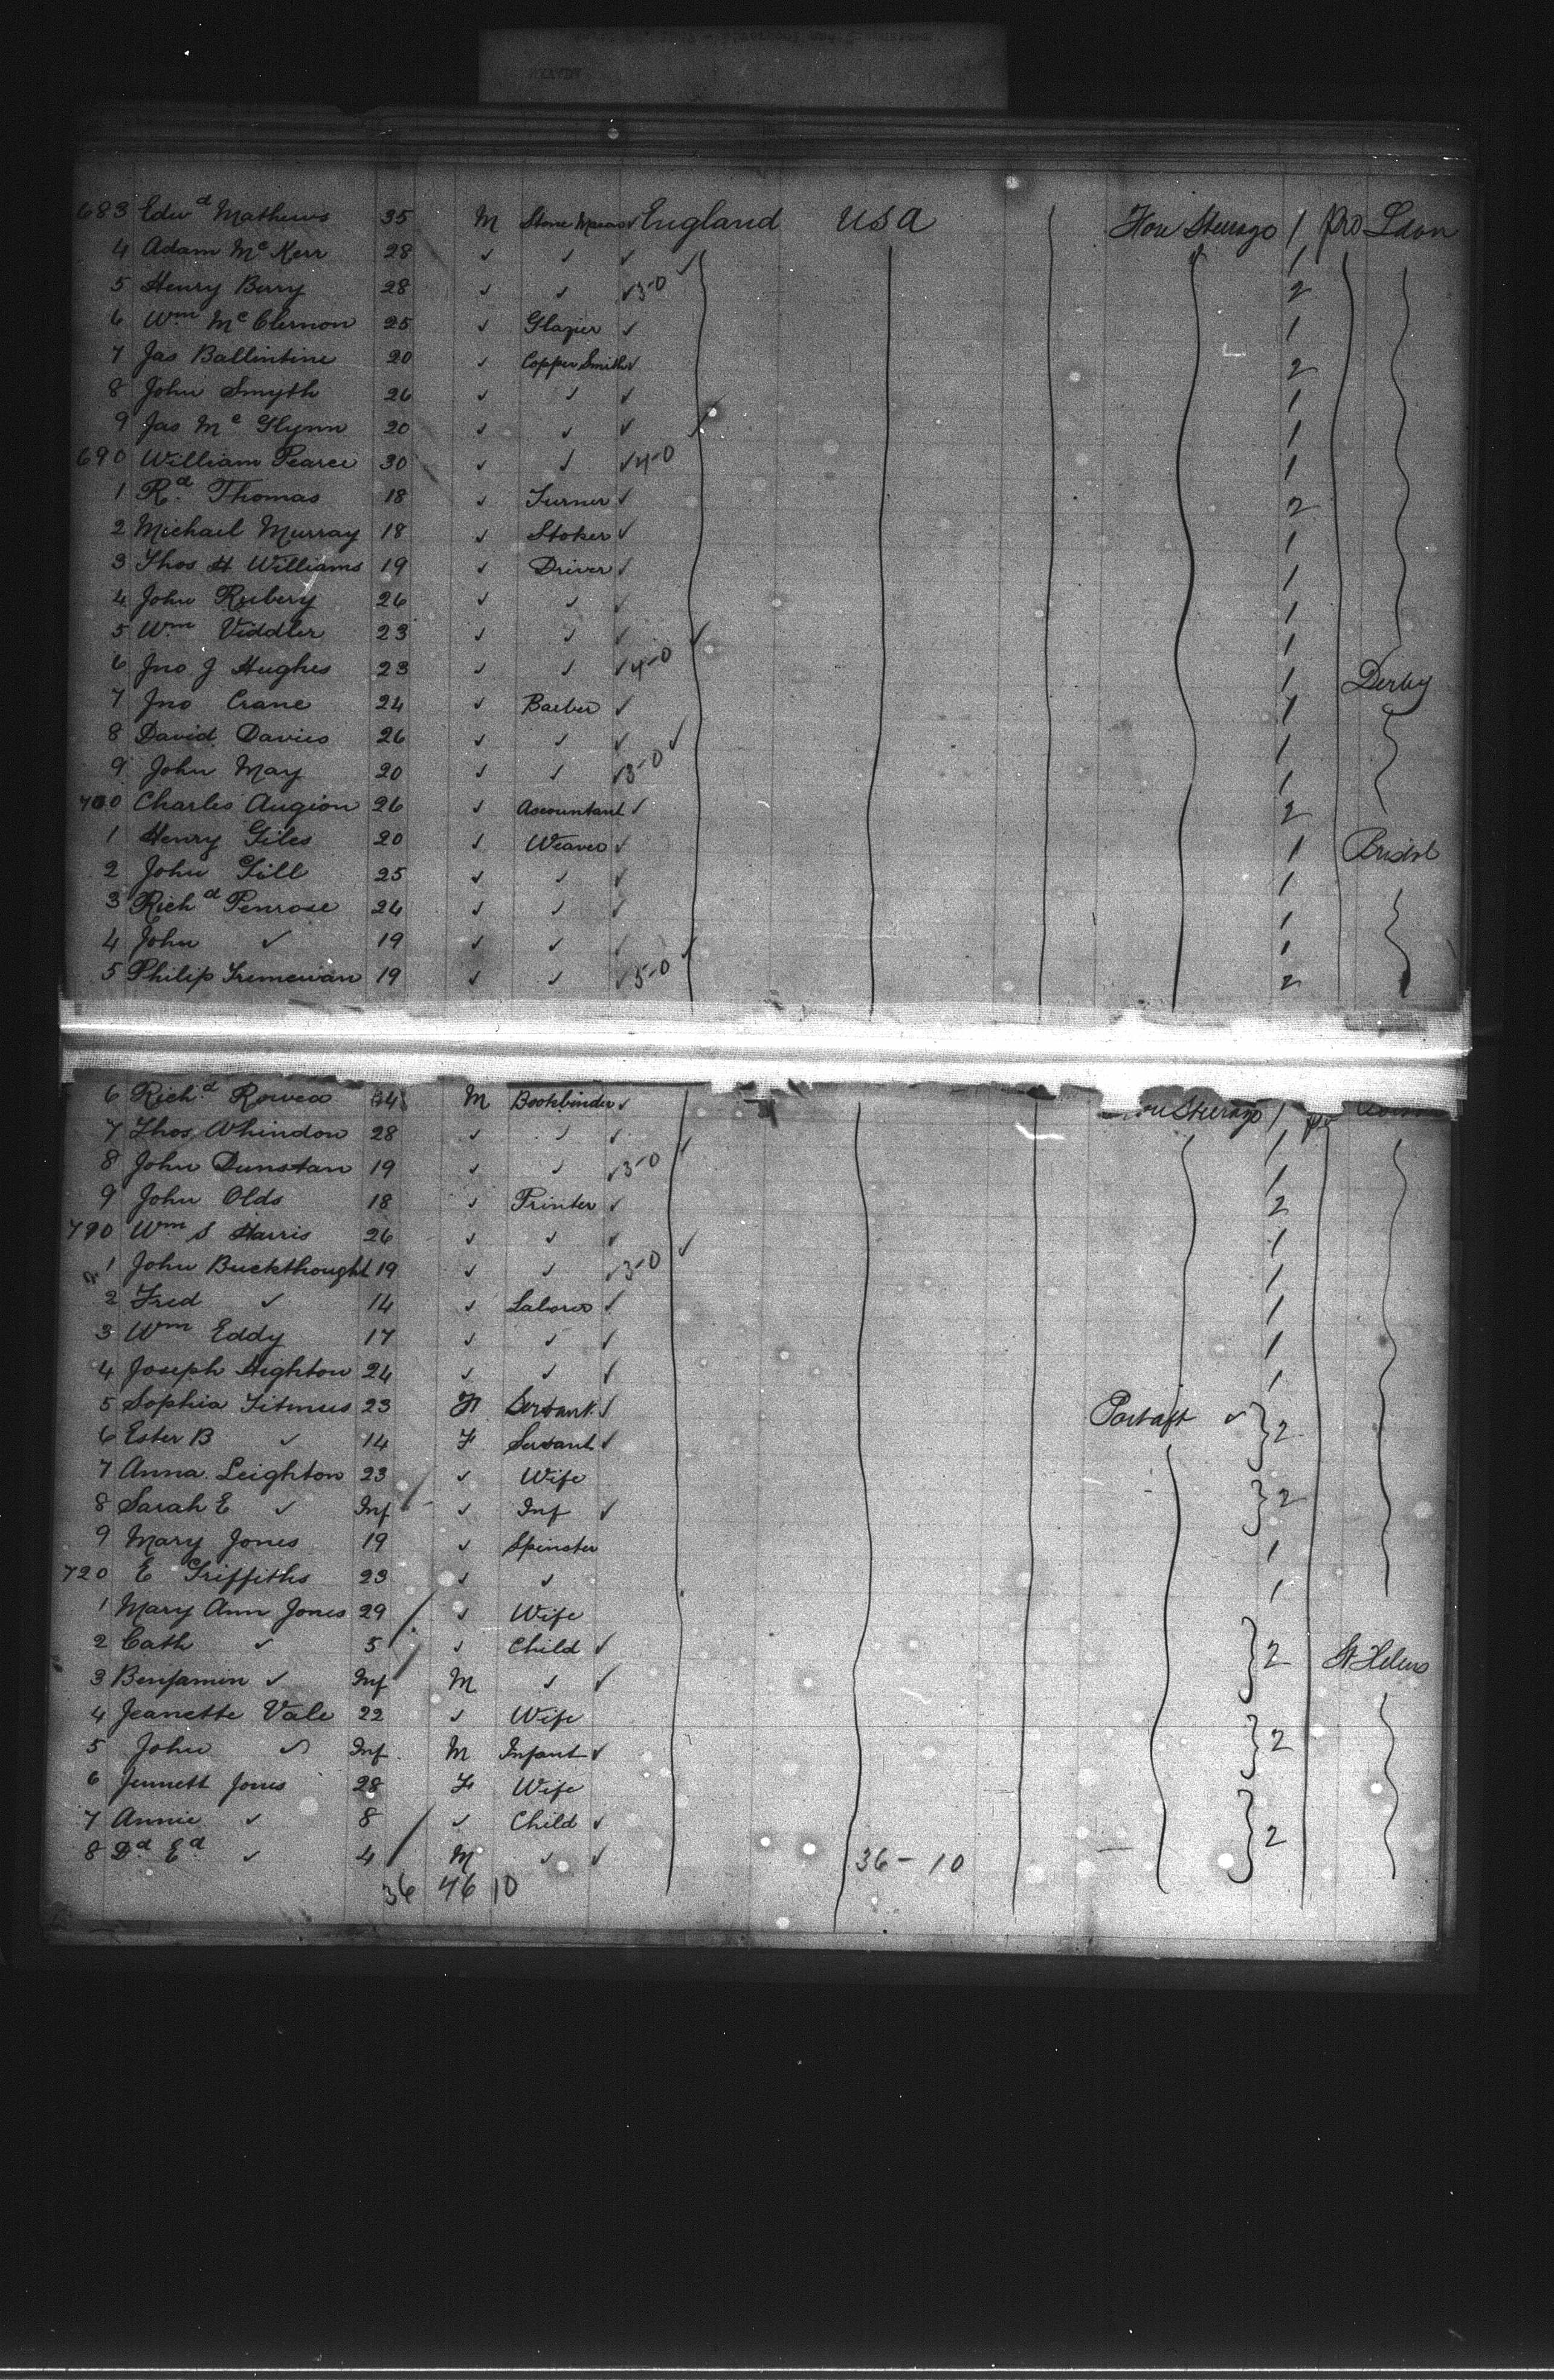 683 Edwd Mathews 35 M Stone Mason ✓ England USA Fou Steerage 1 pro Ldon
4 Adam Mc Kerr 28 ✓ ✓ ✓ 1
5 Henry Berry 28 ✓ ✓ ✓ 3-0 2
6 Wm Mc Clernon 25 ✓ Glazier ✓ 1
7 Jas Ballintine 20 ✓ Copper Smith ✓ 2
8 John Smyth 26 ✓ ✓ ✓ 1
9 Jas Mc Glynn 20 ✓ ✓ ✓ 1
690 William Pearce 30 ✓ ✓ ✓ 4-0 1
1 Rd Thomas 18 ✓ Turner ✓ 2
2 Michael Murray 18 ✓ Stoker ✓ 1
3 Thos H Williams 19 ✓ Driver ✓ 1
4 John Rubery 26 ✓ ✓ ✓ 1
5 Wm Viddler 23 ✓ ✓ ✓ 1
6 Jno J Hughes 23 ✓ ✓ ✓ 4-0 1 Derby
7 Jno Crane 24 ✓ Barber ✓ 1
8 David Davies 26 ✓ ✓ ✓ 1
9 John May 20 ✓ ✓ ✓ 3-0 1
700 Charles Augion 26 ✓ Accountant ✓ 2
1 Henry Giles 20 ✓ Weaver ✓ 1 Bristol
2 John Gill 25 ✓ ✓ ✓ 1
3 Richd Penrose 24 ✓ ✓ ✓ 1
4 John ✓ 19 ✓ ✓ ✓ 1
5 Philip Tremewan 19 ✓ ✓ ✓ 5-0 2
6 Richd Rowea 34 M Bookbinder ✓ Steerage 1
7 Thos Whindon 28 ✓ ✓ ✓ 1
8 John Dunstan 19 ✓ ✓ ✓ 3-0 1
9 John Olds 18 ✓ Printer ✓ 2
710 Wm S Harris 26 ✓ ✓ ✓ 1
1 John Buckthought 19 ✓ ✓ ✓ 3-0 1
2 Fred ✓ 14 ✓ Laborer ✓ 1
3 Wm Eddy 17 ✓ ✓ ✓ 1
4 Joseph Heghton 24 ✓ ✓ ✓ 1
5 Sophia Titmus 23 F Servant ✓ Part aft ✓ } 2
6 Ester B ✓ 14 F Servant ✓
7 Anna Leighton 23 ✓ Wife } 2
8 Sarah E ✓ Inf ✓ Inf ✓
9 Mary Jones 19 ✓ Spinster 1
720 E Griffiths 23 ✓ ✓ 1
1 Mary Ann Jones 29 ✓ Wife
2 Cath ✓ 5 ✓ Child ✓ } 2 St Helens
3 Benjamin ✓ Inf M ✓ ✓
4 Jeanette Vale 22 ✓ Wife } 2
5 John ✓ Inf M Infant ✓
6 Jennett Jones 28 F Wife
7 Annie ✓ 8 ✓ Child ✓ } 2
8 Dd Ed ✓ 4 M ✓ ✓ 36-10
36 46 10